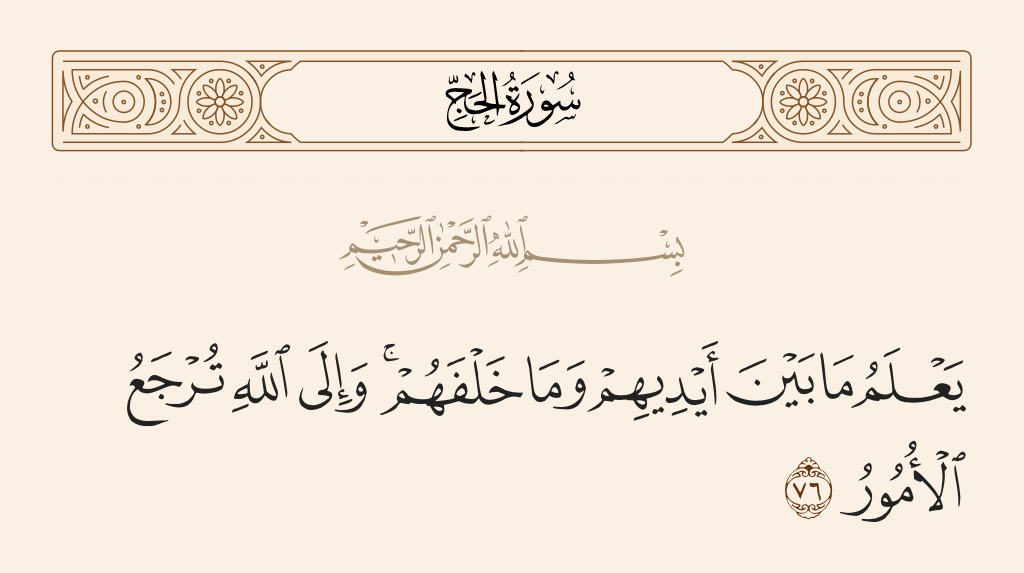 سُورَةُ الحَجِّ
بِسْمِ ٱللَّهِ ٱلرَّحْمَٰنِ ٱلرَّحِيمِ
يَعْلَمُ مَا بَيْنَ أَيْدِيهِمْ وَمَا خَلْفَهُمْ ۚ وَإِلَى ٱللَّهِ تُرْجَعُ
ٱلْأُمُورُ ٧٦